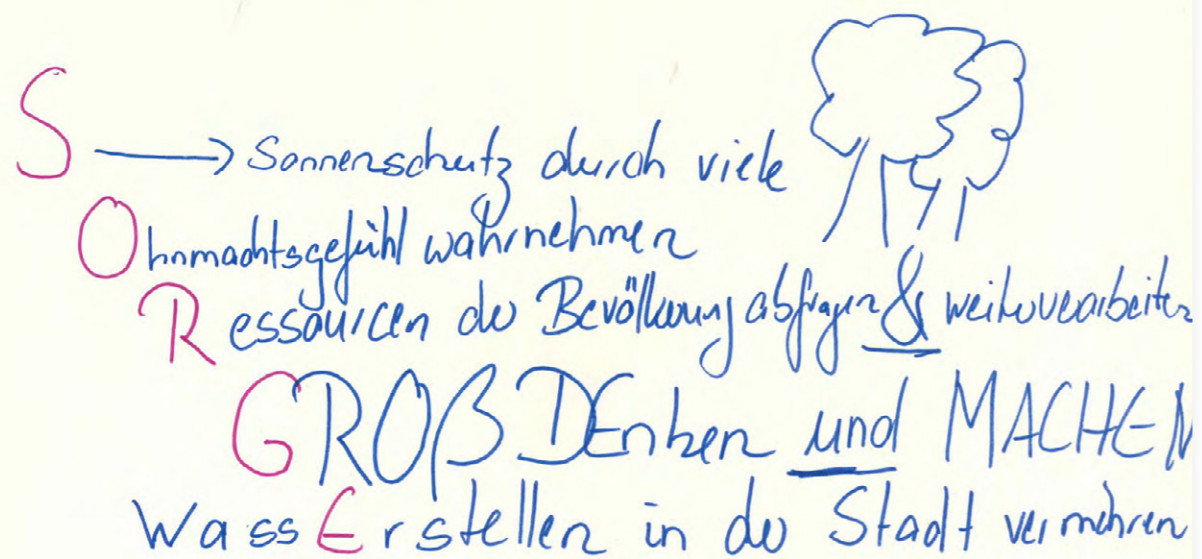 S → Sonnenschutz durch viele
Ohnmachtsgefühl wahrnehmen
Ressourcen der Bevölkerung abfragen & weiterverarbeiten
GROß DEnken und MACHEN
WassErstellen in der Stadt vermehren